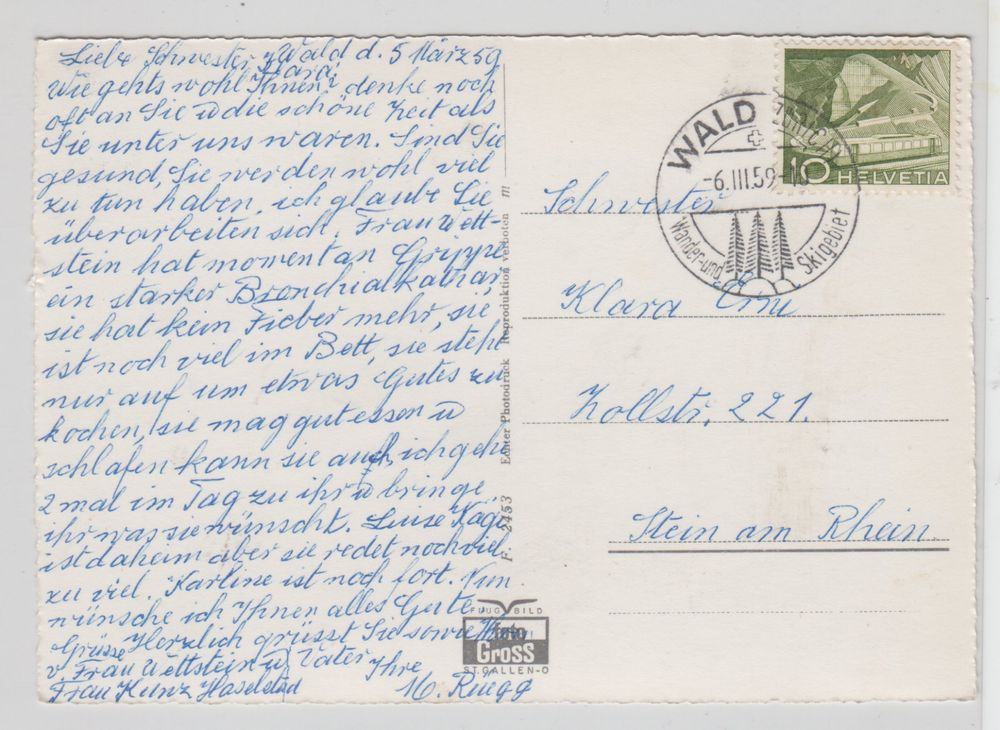 Liebe Schwester Wald d. 5 März 59
Klara,
Wie gehts wohl Ihnen? denke noch
oft an Sie u die schöne Zeit als
Sie unter uns waren. Sind Sie
gesund, Sie werden wohl viel
zu tun haben, ich glaube Sie
überarbeiten sich. Frau Wett-
stein hat momentan Grippe
ein starker Bronchialkathar,
sie hat kein Fieber mehr, sie
ist noch viel im Bett, sie steht
nur auf um etwas Gutes zu
kochen, sie mag gut essen u
schlafen kann sie auch, ich gehe
2 mal im Tag zu ihr u bringe
ihr was sie wünscht. Luise Kägi
ist daheim aber sie redet noch viel
zu viel. Karline ist noch fort. Nun
wünsche ich Ihnen alles Gute,
Herzlich grüsst Sie sowie
Grüsse
v. Frau Wettstein u Vater Ihre
Frau Kunz M. Rüegg
F. 2453 Echter Photodruck Reproduktion verboten m
FLUG BILD
Foto
Gross
ST. GALLEN-O
WALD (ZÜRICH)
-6.III.59-
Wander- und Skigebiet
10
HELVETIA
Schwester
Klara
Zollstr. 221.
Stein am Rhein.